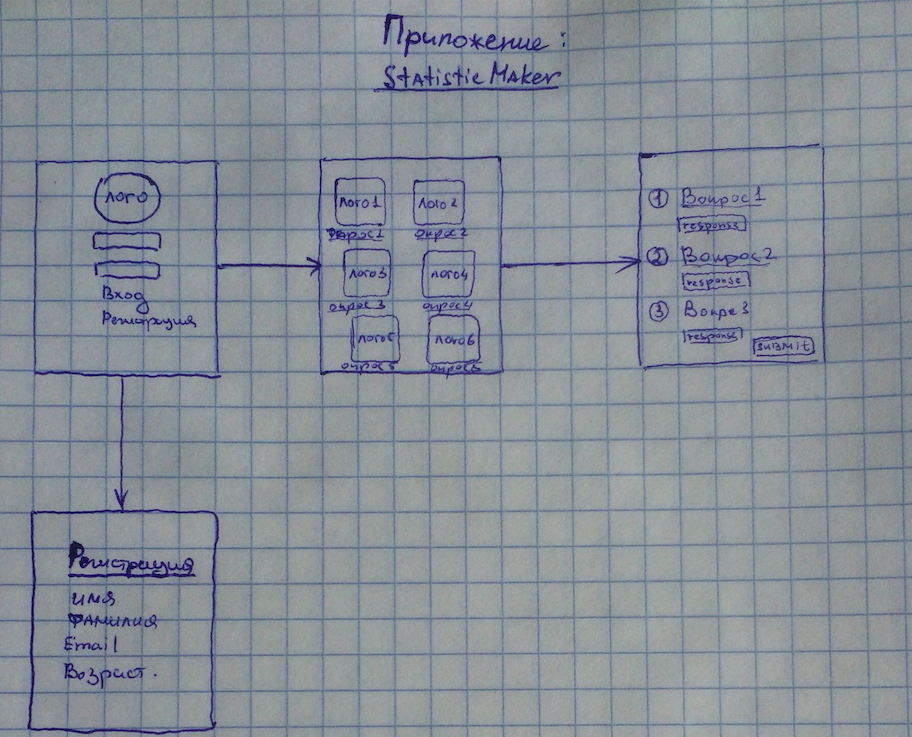 Приложение:
Statistic Maker
лого
Вход
Регистрация
лого1 лого2
опрос1 опрос2
лого3 лого4
опрос3 опрос4
лого5 лого6
опрос5 опрос6
① Вопрос1
response
② Вопрос2
response
③ Вопрс3
response
submit
Регистрация
имя
Фамилия
Email
Возраст.